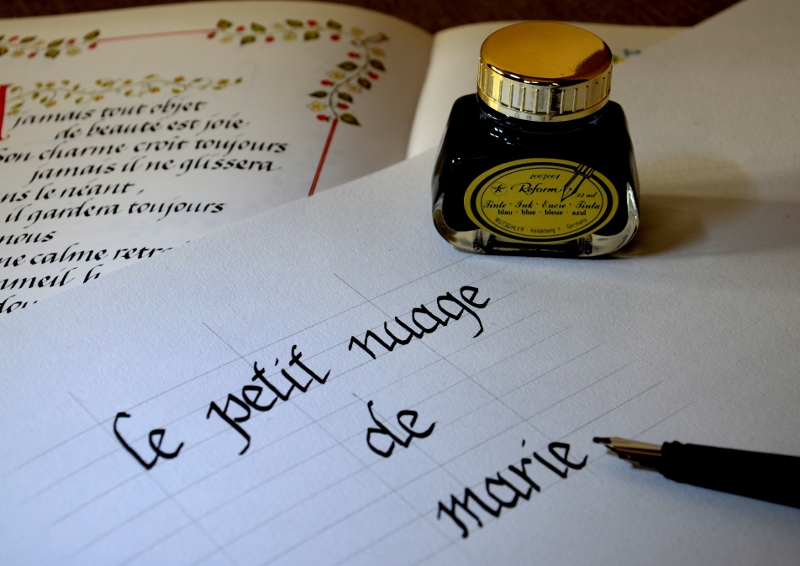 jamais tout objet
de beauté est joie
son charme croît toujours
jamais il ne glissera
le néant,
il gardera toujours
nous
calme
Reform
30 ml
Tinte · Ink · Encre · Tinta
blau · blue · bleue · azul
MUTSCHLER · Heidelberg · Germany
le petit nuage
de
marie